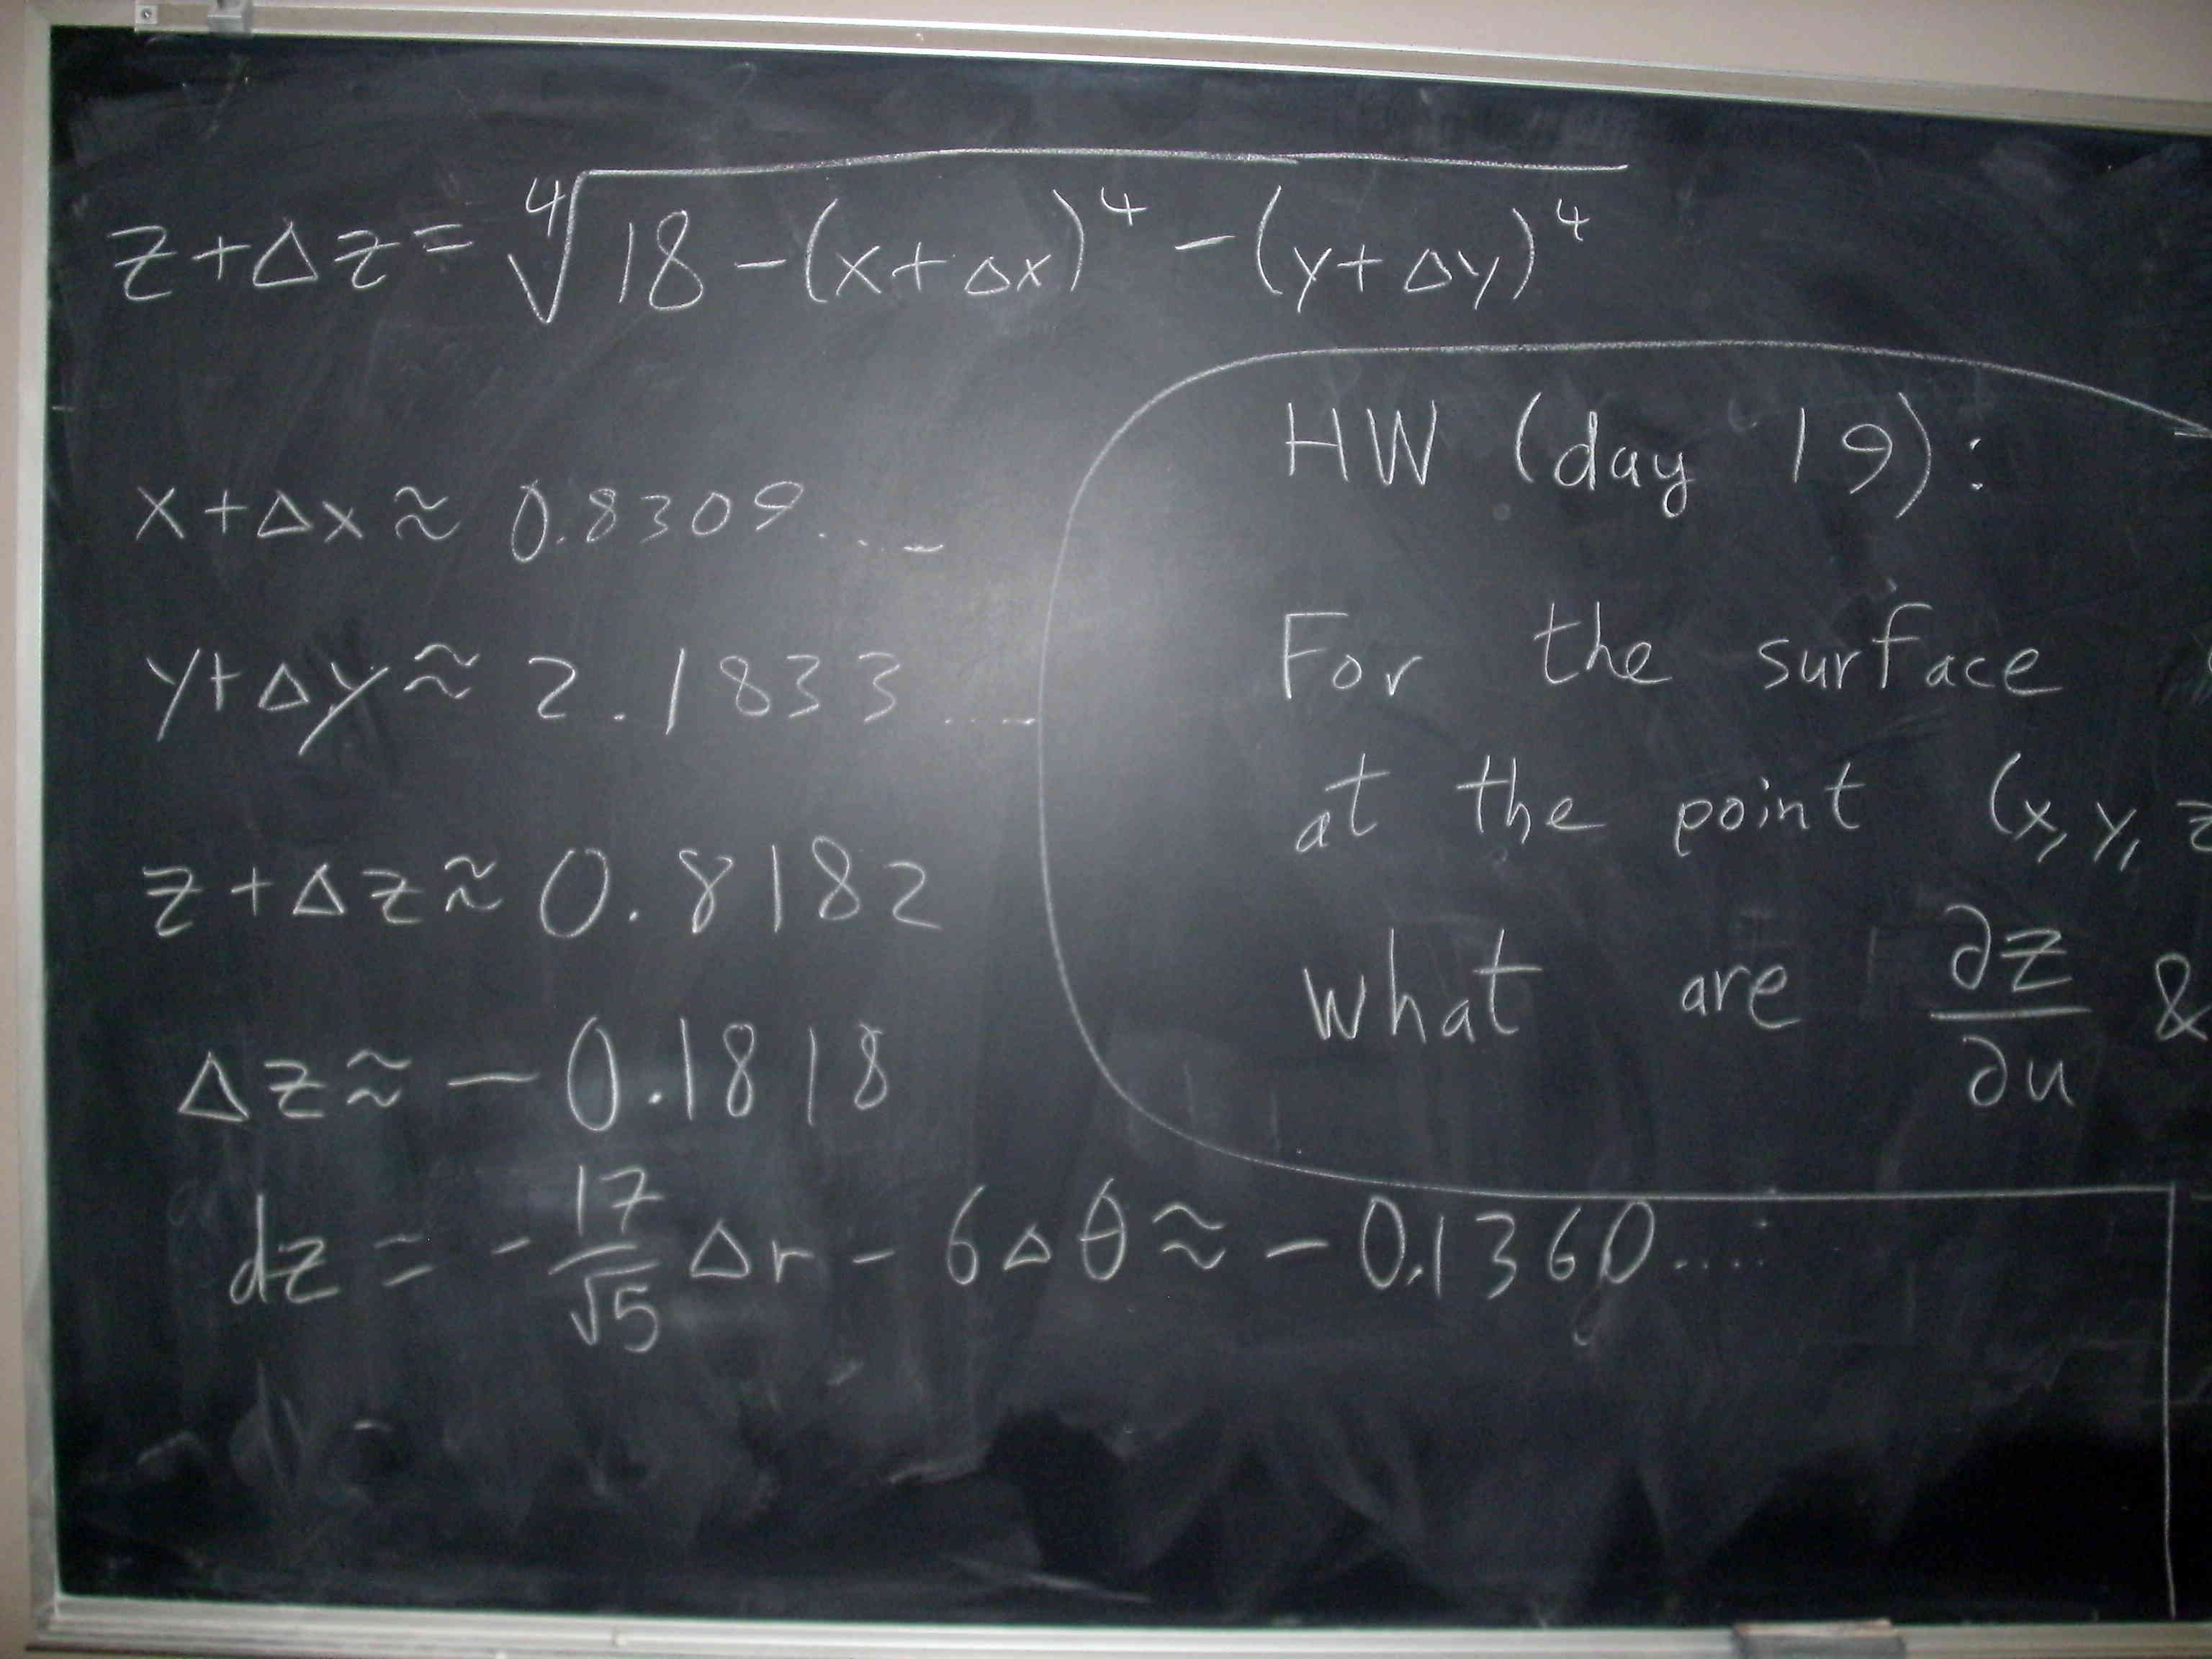 z+Δz = ∜(18-(x+Δx)⁴-(y+Δy)⁴)
x+Δx ≈ 0.8309....
y+Δy ≈ 2.1833....
z+Δz ≈ 0.8182
Δz ≈ -0.1818
dz = -17/√5 Δr - 6Δθ ≈ -0.1360.....
HW (day 19):
For the surface
at the point (x, y, z
what are ∂z/∂u &